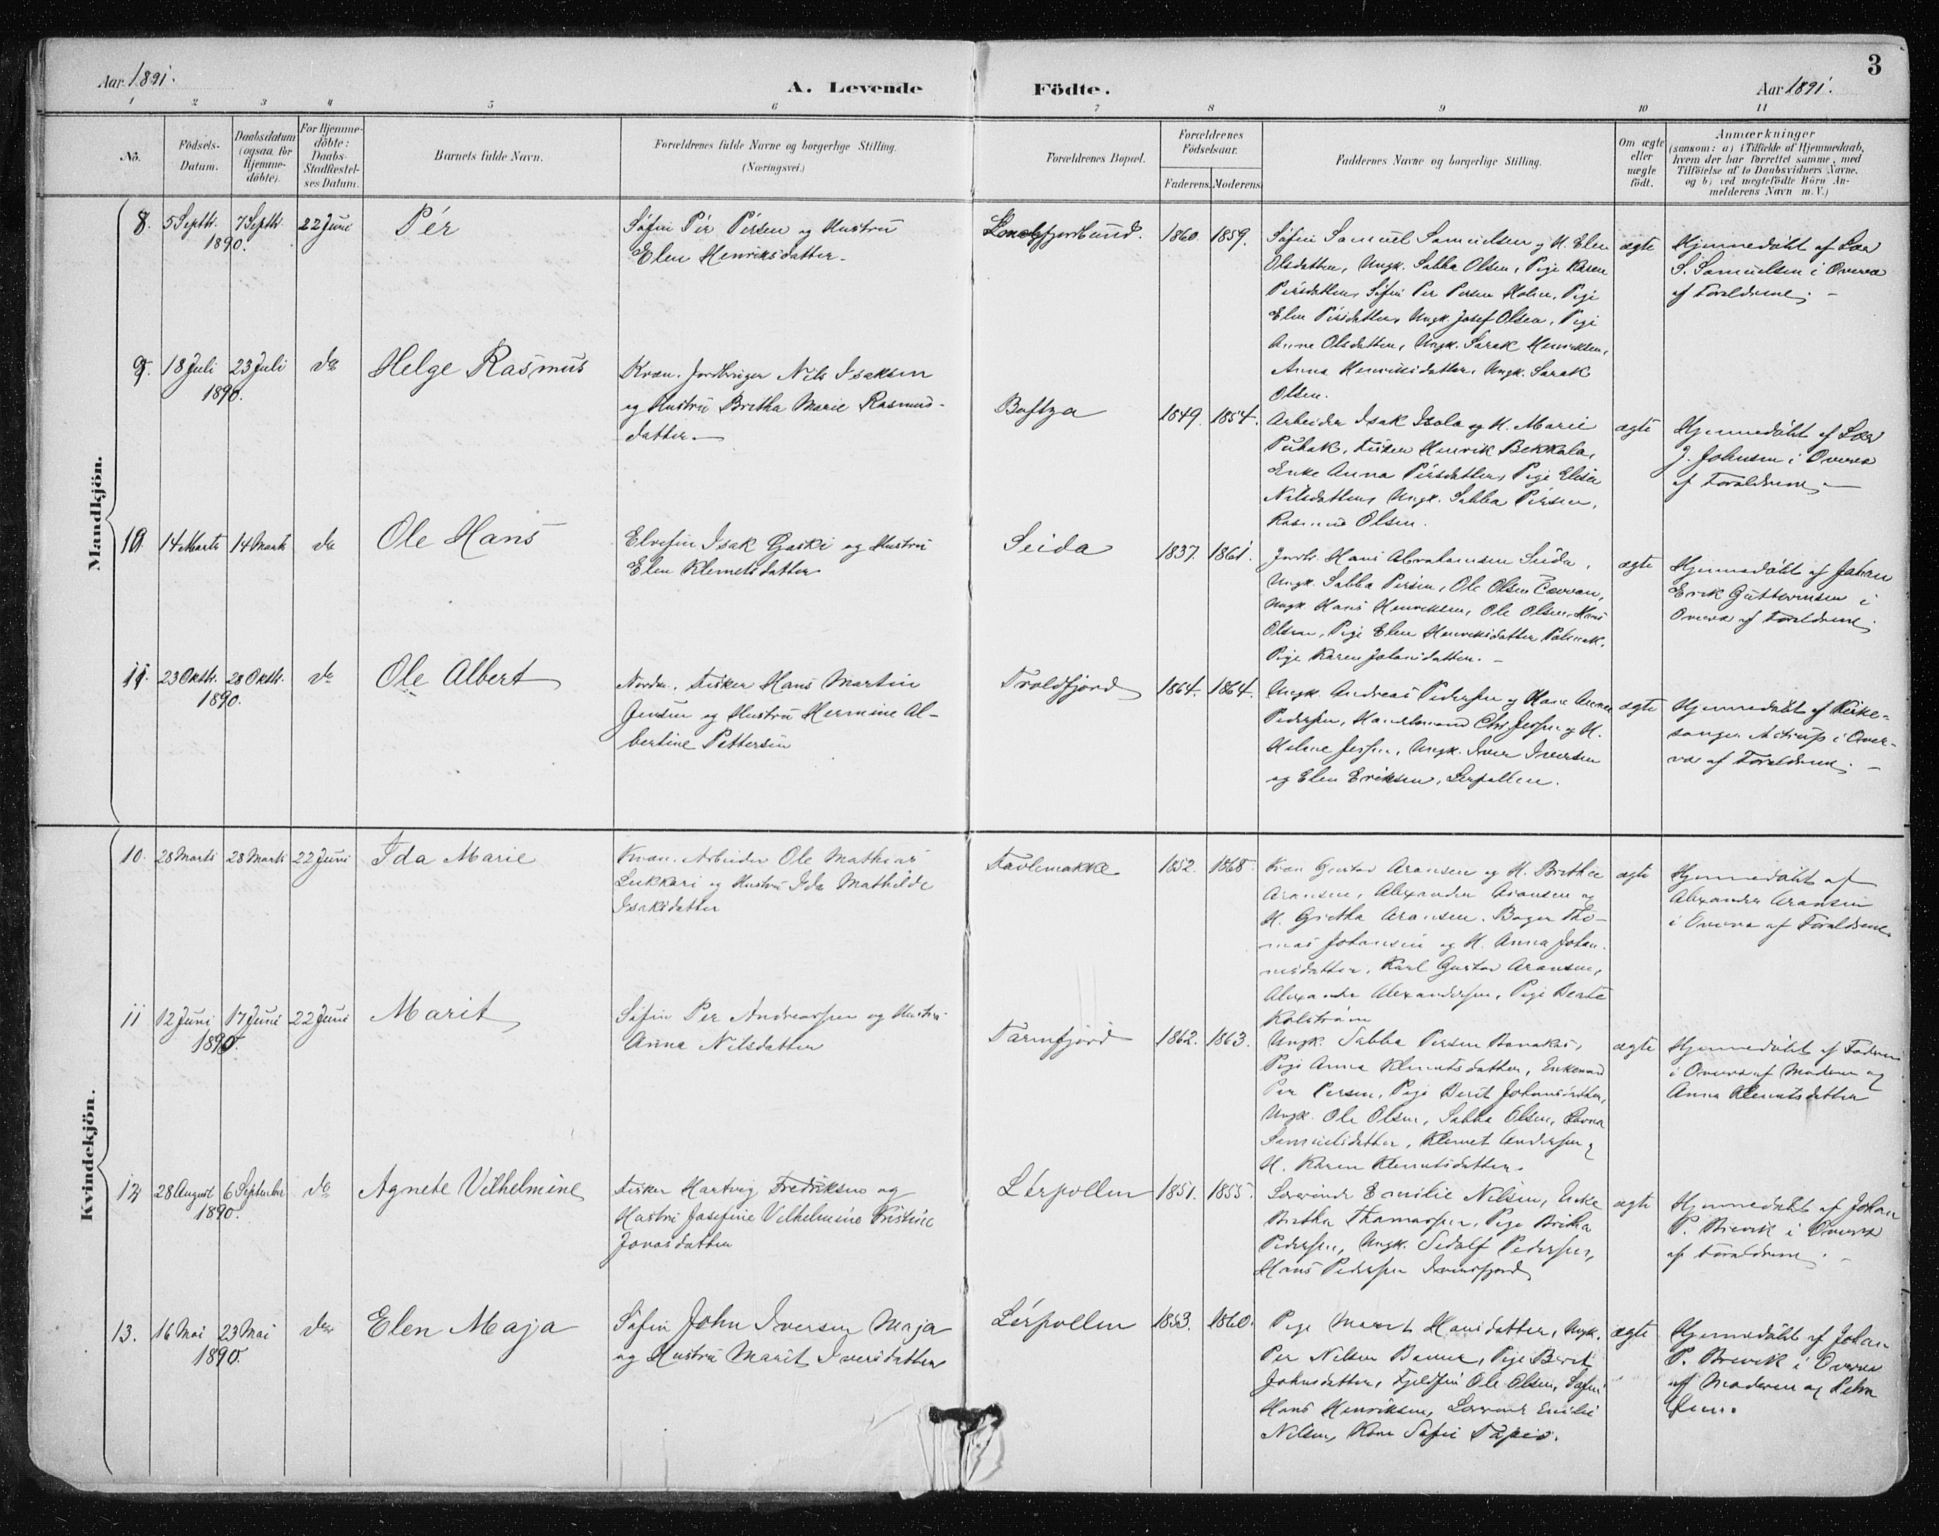 Aar 1891.
A. Levende Födte.
Aar 1891.
3
1 2 3 4 5 6 7 8 9 10 11
No.
Födsels-
Datum.
Daabsdatum
(ogsaa for
Hjemme-
döbte).
For Hjemme-
döbte:
Daabs-
Stadfæstel-
ses Datum.
Barnets fulde Navn.
Forældrenes fulde Navne og borgerlige Stilling.
(Næringsvei.)
Forældrenes Bopæl.
Forældrenes
Födselsaar.
Faderens. Moderens.
Faddernes Navne og borgerlige Stilling.
Om ægte
eller
uægte
födt.
Anmærkninger
(saasom: a) i Tilfælde af Hjemmedaab,
hvem der har forrettet samme, med
Tilföielse af to Daabsvidners Navne,
og b) ved uegtefödte Börn An-
melderens Navn m. V.)
Mandkjön.
8. 5 Septbr. 7 Septbr. 22 Juni
1890.
Pér
Söfin Pér Pérsen og Hustru
Elen Henriksdatter.
1860. 1859.
Söfin Samuel Samuelsen og H. Elen
Olsdatter, Ungk. Sabba Olsen, Pige Karen
Pérsdatter, Söfin Per Persen Holm, Pige
Elen Pérsdatter, Ungk. Josef Olsen, Pige
Anna Olsdatter, Ungk. Sarak Henriksen,
Anna Henriksdatter, Ungk. Sarak
Olsen.
ægte
Hjemmedöbt af Lær
S. Samuelsen i Overvæ
af Forældrene. —
9. 18 Juli 23 Juli do
1890.
Helge Rasmus
Kvæn. Jordbruger Nils Isaksen
og Hustru Bretha Marie Rasmus-
datter. —
Boftza
1849. 1854.
Arbeider Isak Isola og H. Marie
Pubak, Fisker Henrik Bekkala,
Enke Anna Pérsdatter, Pige Elisa
Nilsdatter, Ungk. Sabba Pérsen,
Rasmus Olsen.
ægte
Hjemmedöbt af Lær
J. Johnsen i Overvæ
af Forældrene. —
10. 14 Marts 14 Marts do
Ole Hans
Elvefin Isak Gaski og Hustru
Elen Klemetsdatter
Seida
1837. 1861.
Jordb. Hans Abrahamsen Seida,
Ungk. Sabba Persen, Ole Olsen
Ungk. Hans Henriksen, Ole Olsen, Hans
Olsen, Pige Elen Henriksdatter Polmak,
Pige Karen Johansdatter. —
ægte
Hjemmedöbt af Johan
Erik Guttormsen i
Overvæ af Forældrene.
11. 23 Oktbr. 28 Oktbr. do
1890.
Ole Albert
Nordm. Fisker Hans Martin
Jensen og Hustru Hermine Al-
bertine Pettersen
Troldfjord
1864. 1864.
Ungk. Andreas Pedersen og Hans
Pedersen, Handelsmand Chr. Jessen og H.
Helene Jessen, Ungk. Iver Iversen
og Elen Eriksen, Lerpollen.
ægte
Hjemmedöbt af Kirke-
sanger Astrup i Over-
væ af Forældrene. —
Kvindekjön.
10. 28 Marts 28 Marts 22 Juni
Ida Marie
Kvæn. Arbeider Ole Mathias
Lukkari og Hustru Ida Mathilde
Isaksdatter
1852. 1868.
Kvæn Gustav Aronsen og H. Brithe
Aronsen, Alexander Aronsen og
H. Gretha Aronsen. Bager Tho-
mas Johansen og H. Anna Johan-
nesdatter, Karl Gustav Aronsen,
Alexander Alexandersen, Pige Berte
Kolström
ægte
Hjemmedöbt af
Alexander Aronsen
i Overvæ af Forældrene.
11 12 Juni 17 Juni 22 Juni
1890.
Marit
Söfin Per Andreassen og Hustru
Anna Nilsdatter
Tarmfjord
1862. 1863.
Ungk. Sabba Persen Banakas,
Pige Anna Klemetsdatter, Enkemand
Per Persen, Pige Berit Johansdatter,
Ungk. Ole Olsen, Sabba Olsen, Lovna
Samuelsdatter, Klemet Andersen,
H. Karen Klemetsdatter.
ægte
Hjemmedöbt af Faderen
i Overvæ af Moderen og
Anna Klemetsdatter
12 28 August 6 September do
1890.
Agnete Vilhelmine
Fisker Hartvig Fredriksen og
Hustru Josefine Vilhelmine Kristine
Jonasdatter
Lérpollen
1851. 1855.
Emilie Nilsen, Enke
Bretha Thomassen, Pige Britha
Pedersen, Ungk. Sedolf Pedersen,
Hans Pedersen
ægte
Hjemmedöbt af Johan
P. Brevik i Overvæ
af Forældrene. —
13. 16 Mai 23 Mai do
1890.
Elen Maja
Söfin John Iversen Maja
og Hustru Marit Iversdatter
Lérpollen
1853. 1860.
Pige Marit Hansdatter, Ungk.
Per Nilsen Banne, Pige Berit
Johnsdatter, Fjeldfin Ole Olsen, Söfin
Hans Henriksen, Emilie
Nilsen, Kone Sofie
ægte
Hjemmedöbt af Johan
P. Brevik i Overvæ
af Moderen og